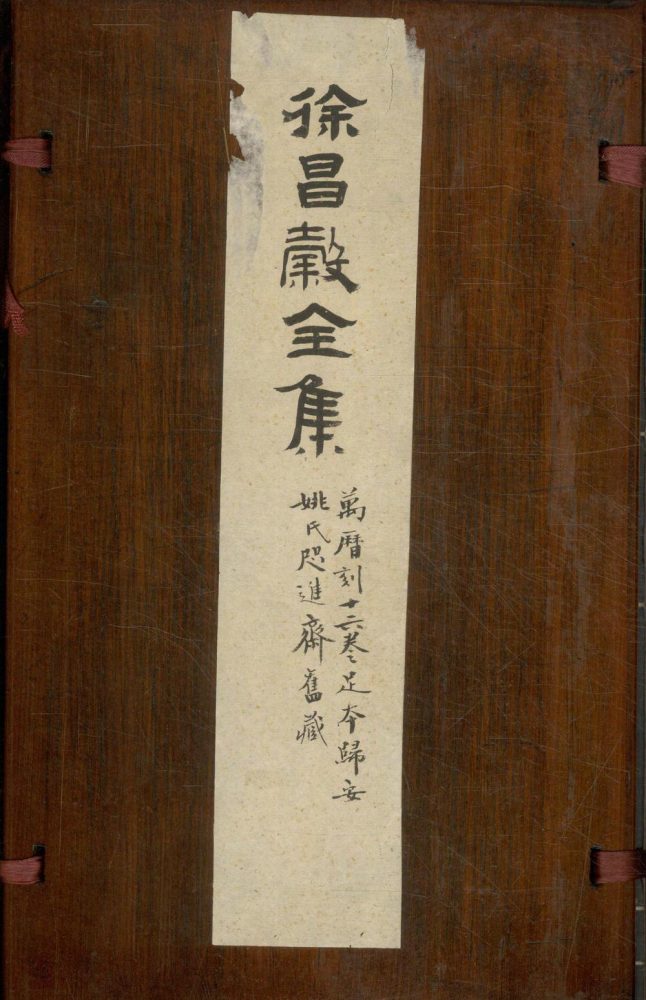 徐昌穀全集
萬曆刻十六卷足本歸安
姚氏咫進齋舊藏